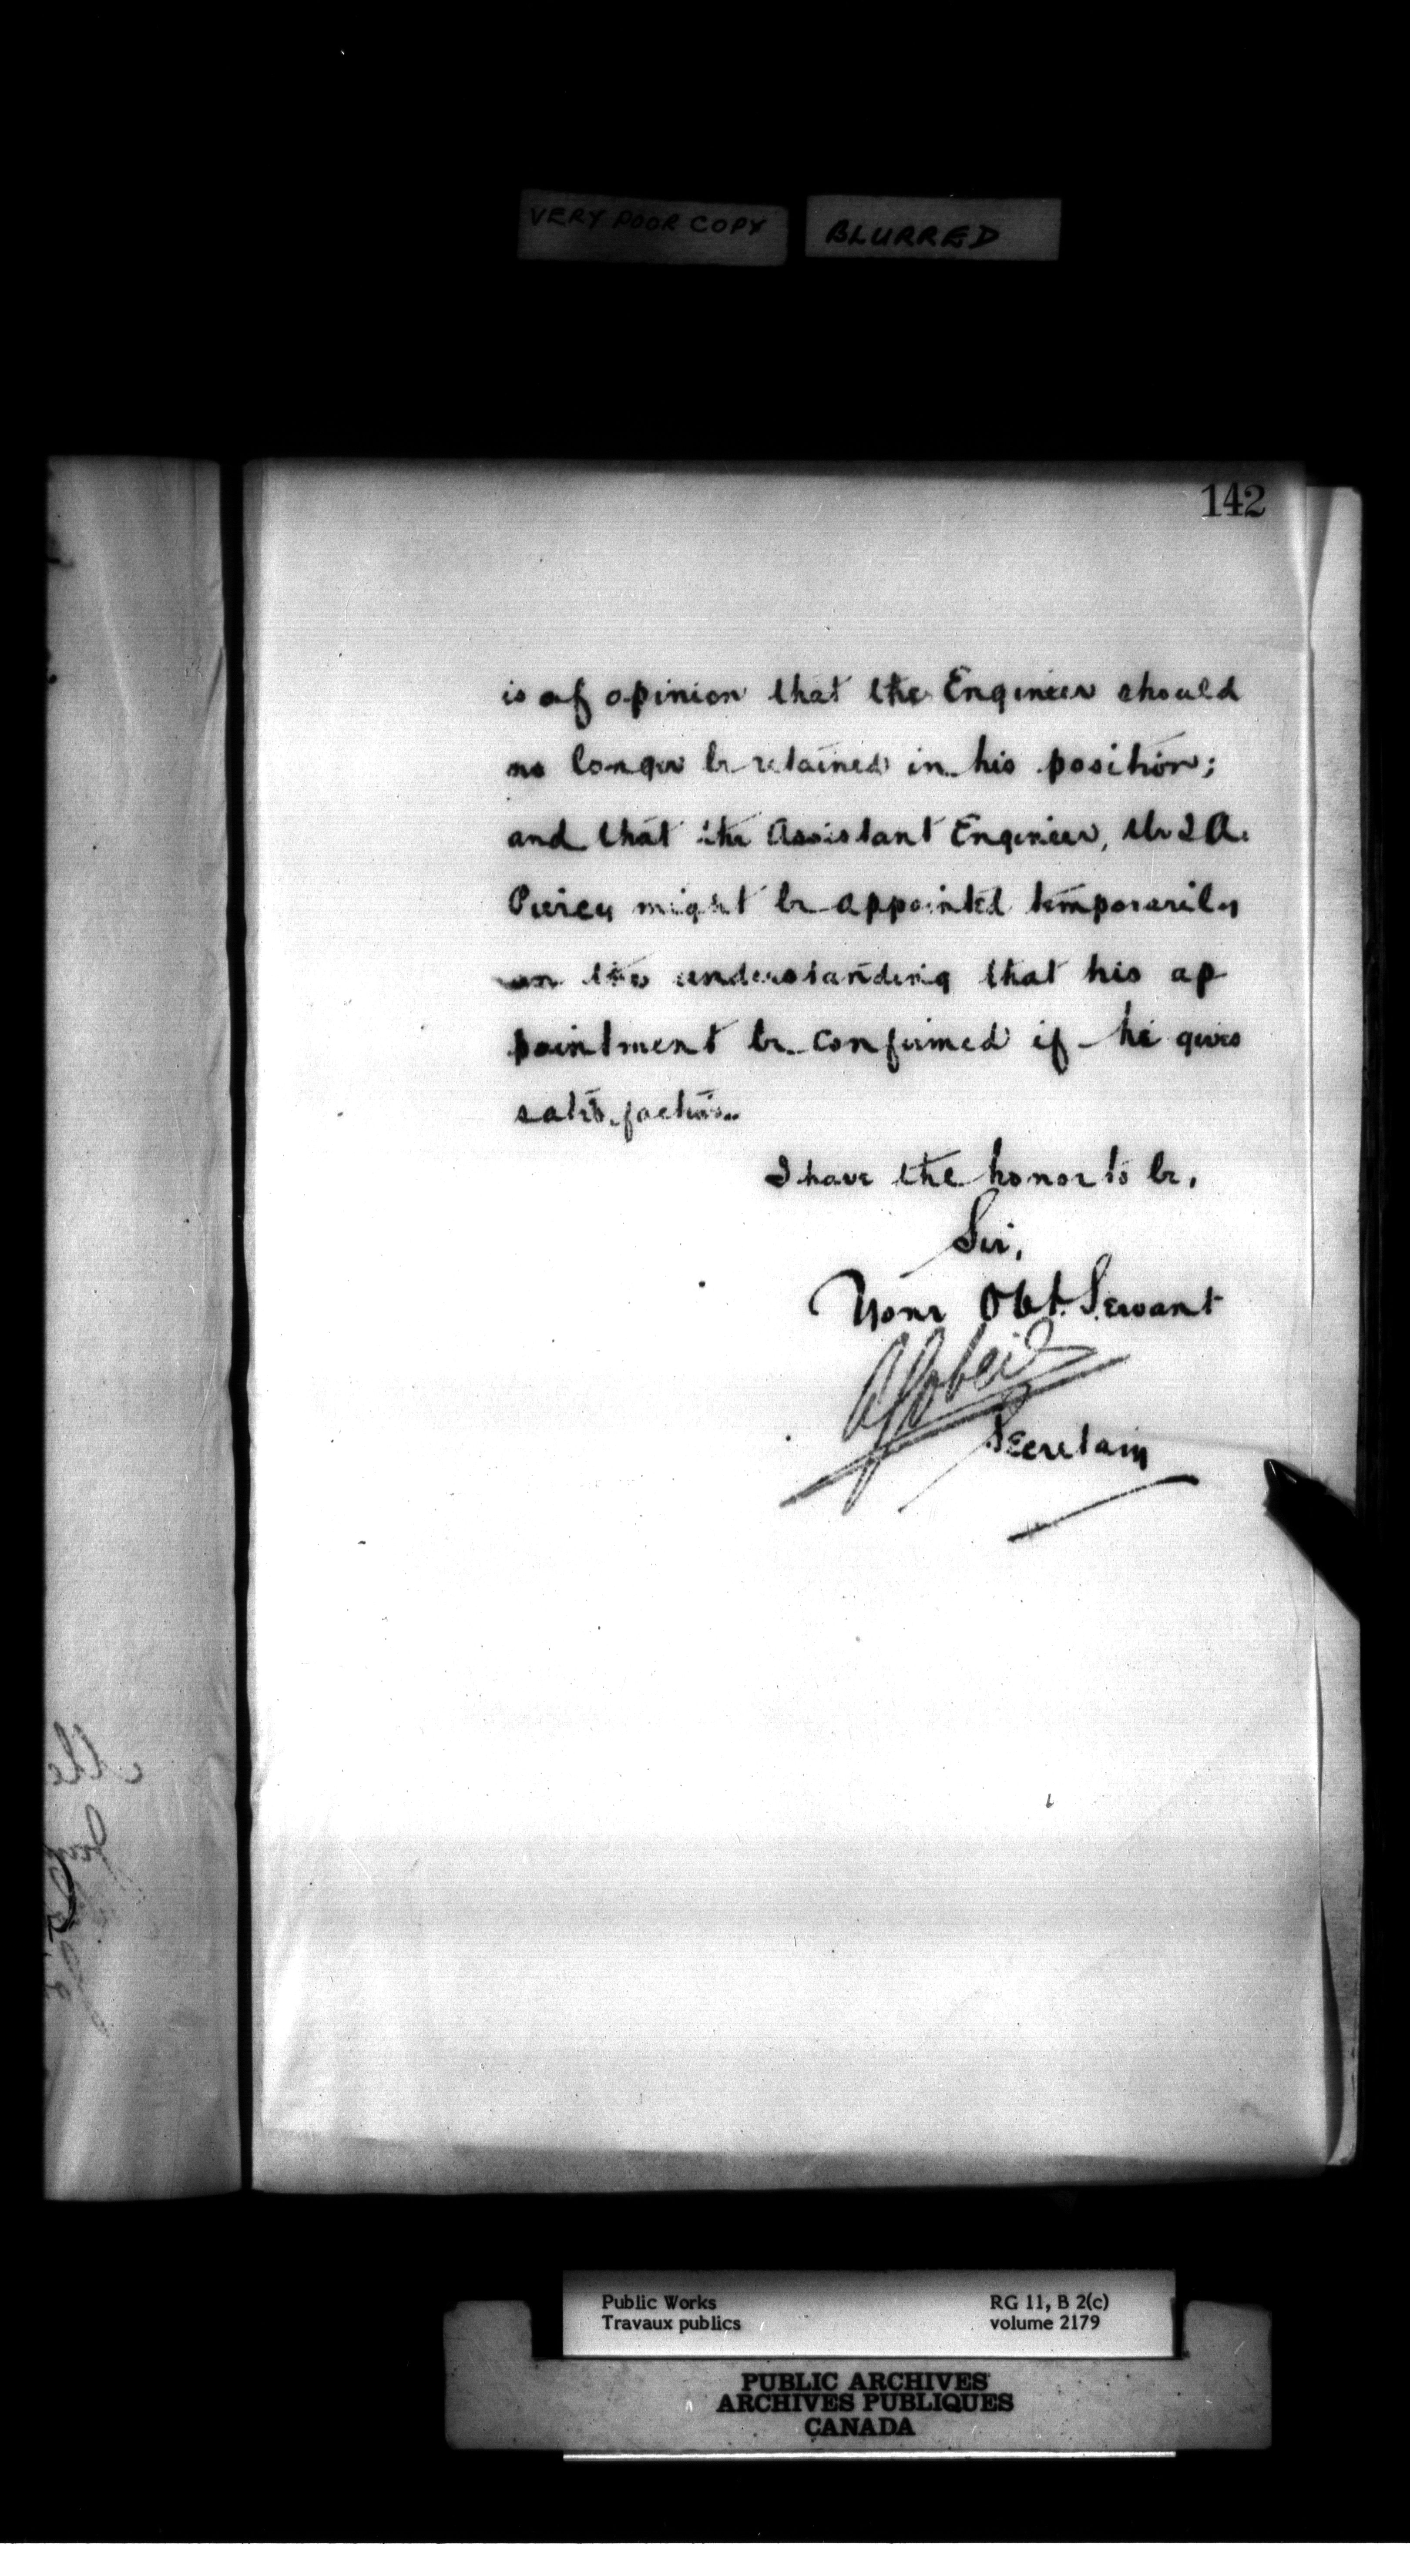 VERY POOR COPY
BLURRED
142
is of opinion that the Engineer should
no longer be retained in his position;
and that the Assistant Engineer, Mr
might be appointed temporarily
on the understanding that his ap
pointment be confirmed if he gives
satisfaction.
I have the honor to be,
Sir,
Your Obt. Servant
Secretary
Public Works
Travaux publics
RG 11, B 2(c)
volume 2179
PUBLIC ARCHIVES
ARCHIVES PUBLIQUES
CANADA